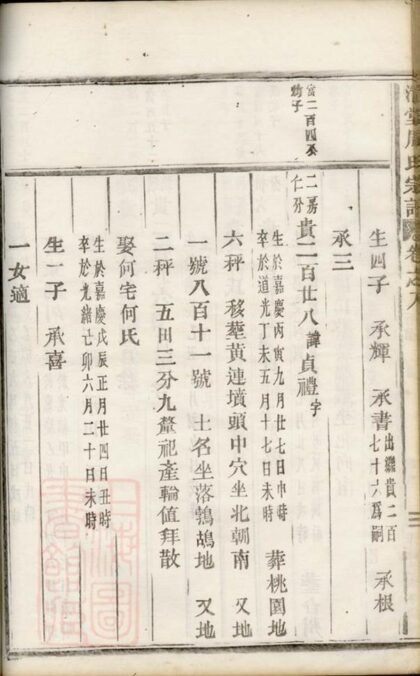 生四子 承輝 承書 出繼貴二百七十六爲嗣 承根
承三
富二百四㳟幼子
二房仁分 貴二百廿八 諱貞禮 字
生於嘉慶丙寅九月廿七日申時
卒於道光丁未五月十七日未時 葬桃園地
六秤 移塟黄連墳頭中穴坐北朝南 又地
一號八百十一號 土名坐落鵓鴣地 又地
二秤 五田三分九釐祀產輪值拜散
娶何宅何氏
生於嘉慶戊辰正月廿四日丑時
卒於光緒亡卯六月二十日未時
生一子 承喜
一女適